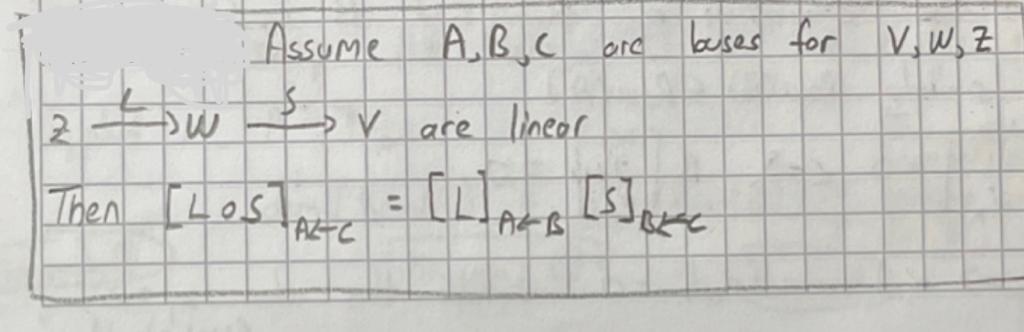 Assume A, B, C are bases for V, W, Z
Z \xrightarrow{L} W \xrightarrow{S} V are linear
Then [L o S]_{A←C} = [L]_{A←B} [S]_{B←C}